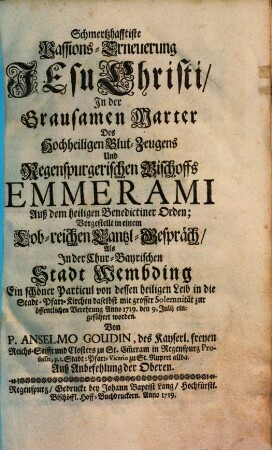 Schmertzhafftiste
Passions-Erneuerung
JEsu Christi/
In der
Grausamen Marter
Des
Hochheiligen Blut-Zeugens
Und
Regenspurgerischen Bischoffs
EMMERAMI
Auß dem heiligen Benedictiner Orden;
Vorgestellt in einem
Lob-reichen Cantzl-Gespräch/
Als
In der Chur-Bayrischen
Stadt Wembding
Ein schöner Particul von dessen heiligen Leib in die
Stadt-Pfarr-Kirchen daselbst mit grosser Solemnität zur
öffentlichen Verehrung Anno 1719. den 9. Julij ein-
geführet worden.
Von
P. ANSELMO GOUDIN, des Kayserl. freyen
Reichs-Stifft und Closters zu St. Em̃eram in Regenspurg Pro-
fessin, p. t. Stadt-Pfarr-Vicario zu St. Rupert allda.
Auß Anbefehlung der Oberen.
Regenspurg/ Gedruckt bey Johann Baptist Lang/ Hochfürstl.
Bischöffl. Hoff-Buchdruckern. Anno 1719.